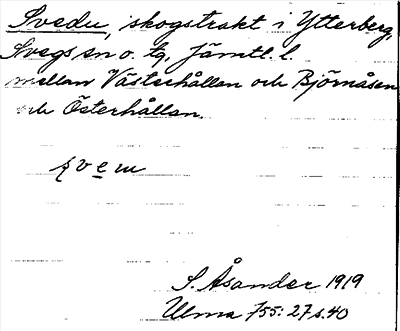 Svedu, skogstrakt i Ytterberg,
Svegs sn o. tg. Jämtl. l.
mellan Västerhållan och Björnåsen
och Österhållan.
S. Åsander 1919
Ulma 755: 27 s. 40